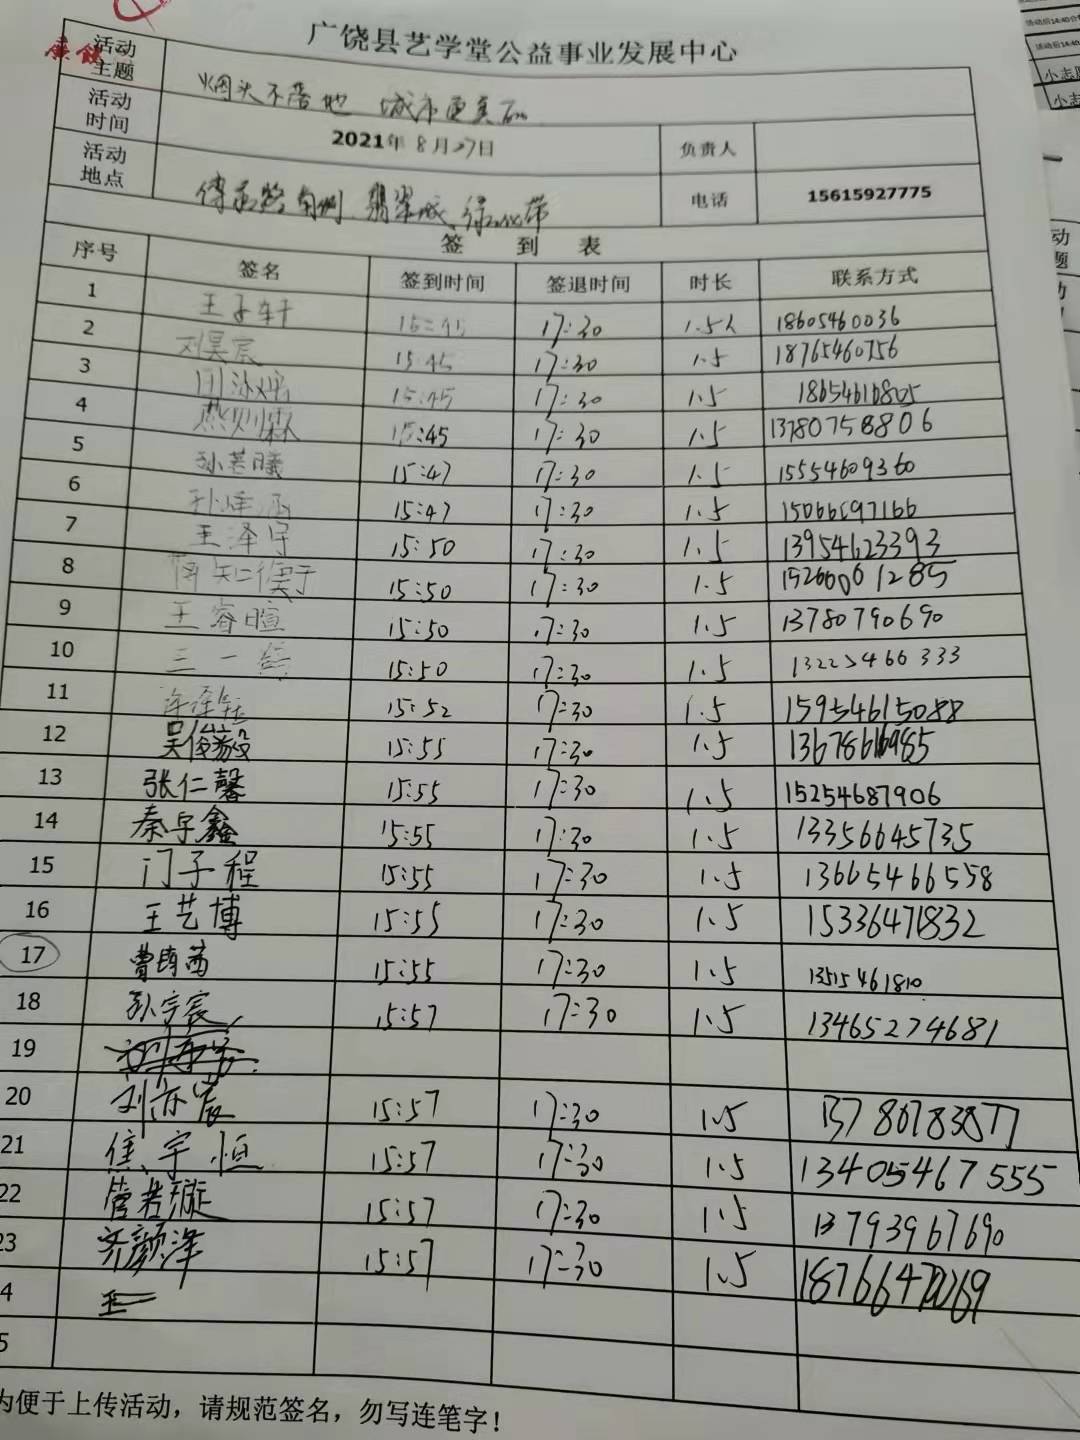 广饶县艺学堂公益事业发展中心
活动主题 烟头不落地 城市更美丽
活动时间 2021年8月27日 负责人
活动地点 傅 路南侧 翡翠城 绿化带 电话 15615927775
签到表
序号 签名 签到时间 签退时间 时长 联系方式
1 王子轩 15:45 17:30 1.5 18605460036
2 刘昊宸 15:45 17:30 1.5 18765460756
3 15:45 17:30 1.5 18654610805
4 燕则霖 15:45 17:30 1.5 13780758806
5 孙艺曦 15:47 17:30 1.5 15554609360
6 15:47 17:30 1.5 15066597166
7 王泽宇 15:50 17:30 1.5 13954623393
8 15:50 17:30 1.5 15266061285
9 王睿暄 15:50 17:30 1.5 13780790690
10 15:50 17:30 1.5 13225466333
11 15:52 17:30 1.5 15954615088
12 吴俊毅 15:55 17:30 1.5
13 张仁馨 15:55 17:30 1.5 15254687906
14 秦宇鑫 15:55 17:30 1.5 13356645735
15 门子程 15:55 17:30 1.5 13665466558
16 王艺博 15:55 17:30 1.5 15336471832
17 15:55 17:30 1.5 13515461810
18 孙宇宸 15:57 17:30 1.5 13465274681
19
20 刘亦宸 15:57 17:30 1.5 13780783877
21 焦宇恒 15:57 17:30 1.5 13405467555
22 管若璇 15:57 17:30 1.5 13793967690
23 齐颜泽 15:57 17:30 1.5
4
5
为便于上传活动，请规范签名，勿写连笔字！